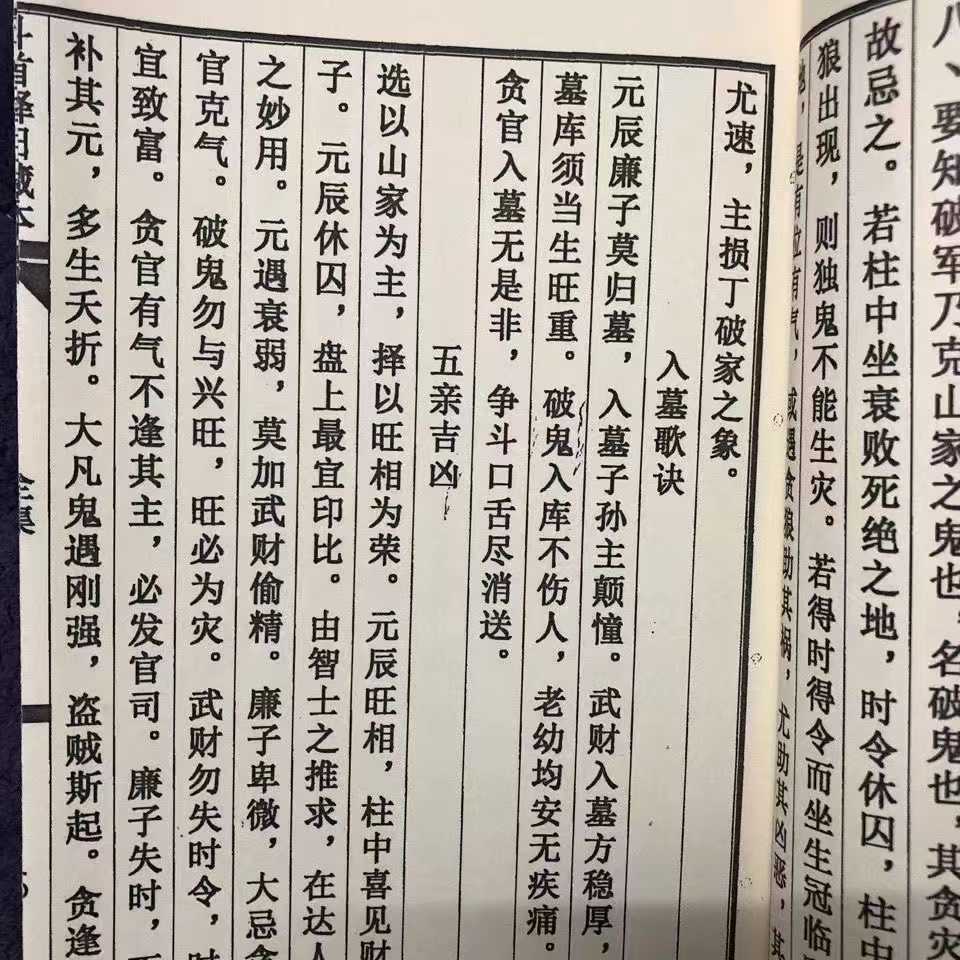 八、要知破军乃克山家之鬼也，名破鬼也，其贪
故忌之。若柱中坐衰败死绝之地，时令休囚，柱中
狼出现，则独鬼不能生灾。若得时得令而坐生冠临
地，是有位有气，或遇贪狼助其祸，尤助其凶恶，其
尤速，主损丁破家之象。
入墓歌诀
元辰廉子莫归墓，入墓子孙主颠憧。武财入墓方稳厚，
墓库须当生旺重。破鬼入库不伤人，老幼均安无疾痛。
贪官入墓无是非，争斗口舌尽消送。
五亲吉凶
选以山家为主，择以旺相为荣。元辰旺相，柱中喜见财
子。元辰休囚，盘上最宜印比。由智士之推求，在达人
之妙用。元遇衰弱，莫加武财偷精。廉子卑微，大忌贪
官克气。破鬼勿与兴旺，旺必为灾。武财勿失时令，时
宜致富。贪官有气不逢其主，必发官司。廉子失时，
补其元，多生夭折。大凡鬼遇刚强，盗贼斯起。贪逢
斗首择日藏本
全集